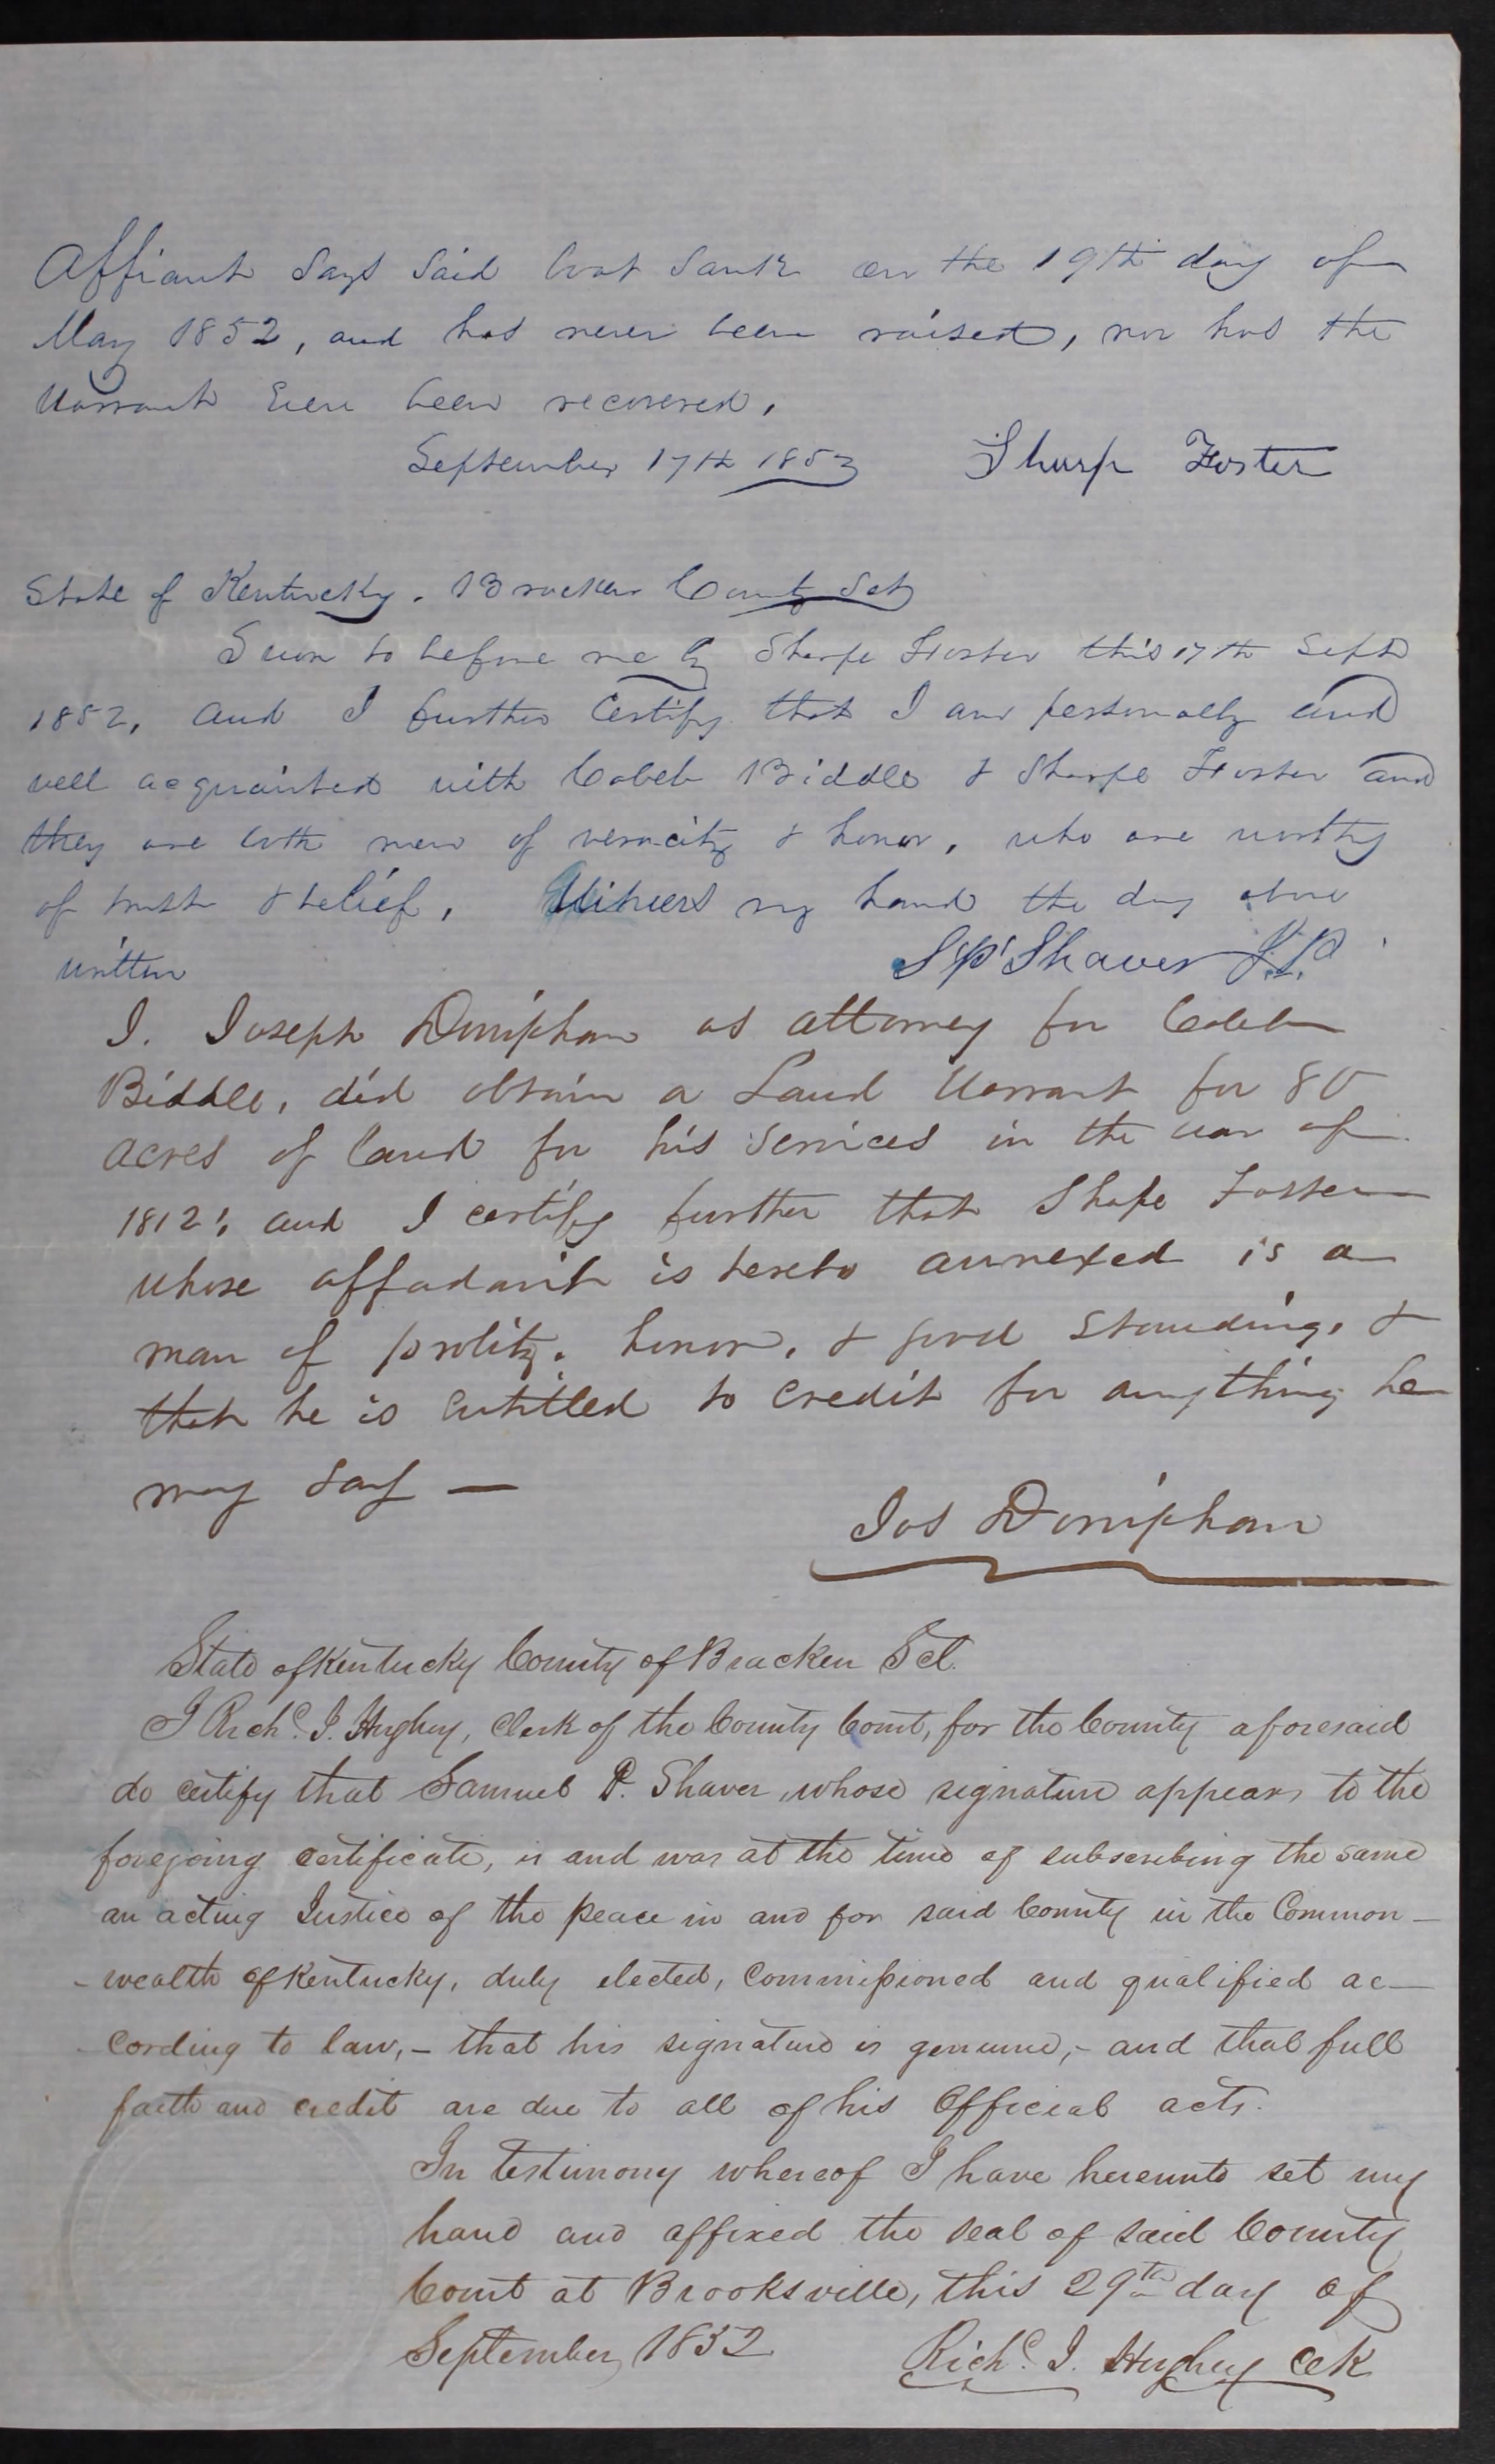 Affiant Says Said boat Sank on the 19th day of
May 1852, and has never been raised, nor has the
Warrant Ever been recovered.
September 17th 1852 Sharp Foster
State of Kentucky. Bracken County Sct
Sworn to before me by Sharpe Foster this 17th Sept
1852, and I further Certify that I am personally and
well acquainted with Caleb Biddle & Sharpe Foster and
they are both men of veracity & honor, who are worthy
of trust & belief. Witness my hand the day above
written S P Shaver J.P.
I. Joseph Doniphan as attorney for Caleb
Biddle, did obtain a Land Warrant for 80
acres of land for his Services in the war of
1812; and I certify further that Shape Foster
whose affadavit is hereto annexed is a
man of probity. honor, & good Standing, &
that he is Entitled to Credit for anything he
may say —
Jos Doniphan
State of Kentucky County of Bracken Sct.
I Richd. J. Hughey, Clerk of the County Court, for the County aforesaid
do certify that Samuel P. Shaver, whose signature appears to the
foregoing certificate, is and was at the time of subscribing the same
an acting Justice of the peace in and for said County in the Common-
-wealth of Kentucky, duly elected, Commissioned and qualified ac-
cording to law, - that his signature is genuine, - and that full
faith and credit are due to all of his Official acts.
In testimony whereof I have hereunto set my
hand and affixed the seal of said County
Court at Brooksville, this 29th day of
September, 1852 Richd. J. Hughey Clk